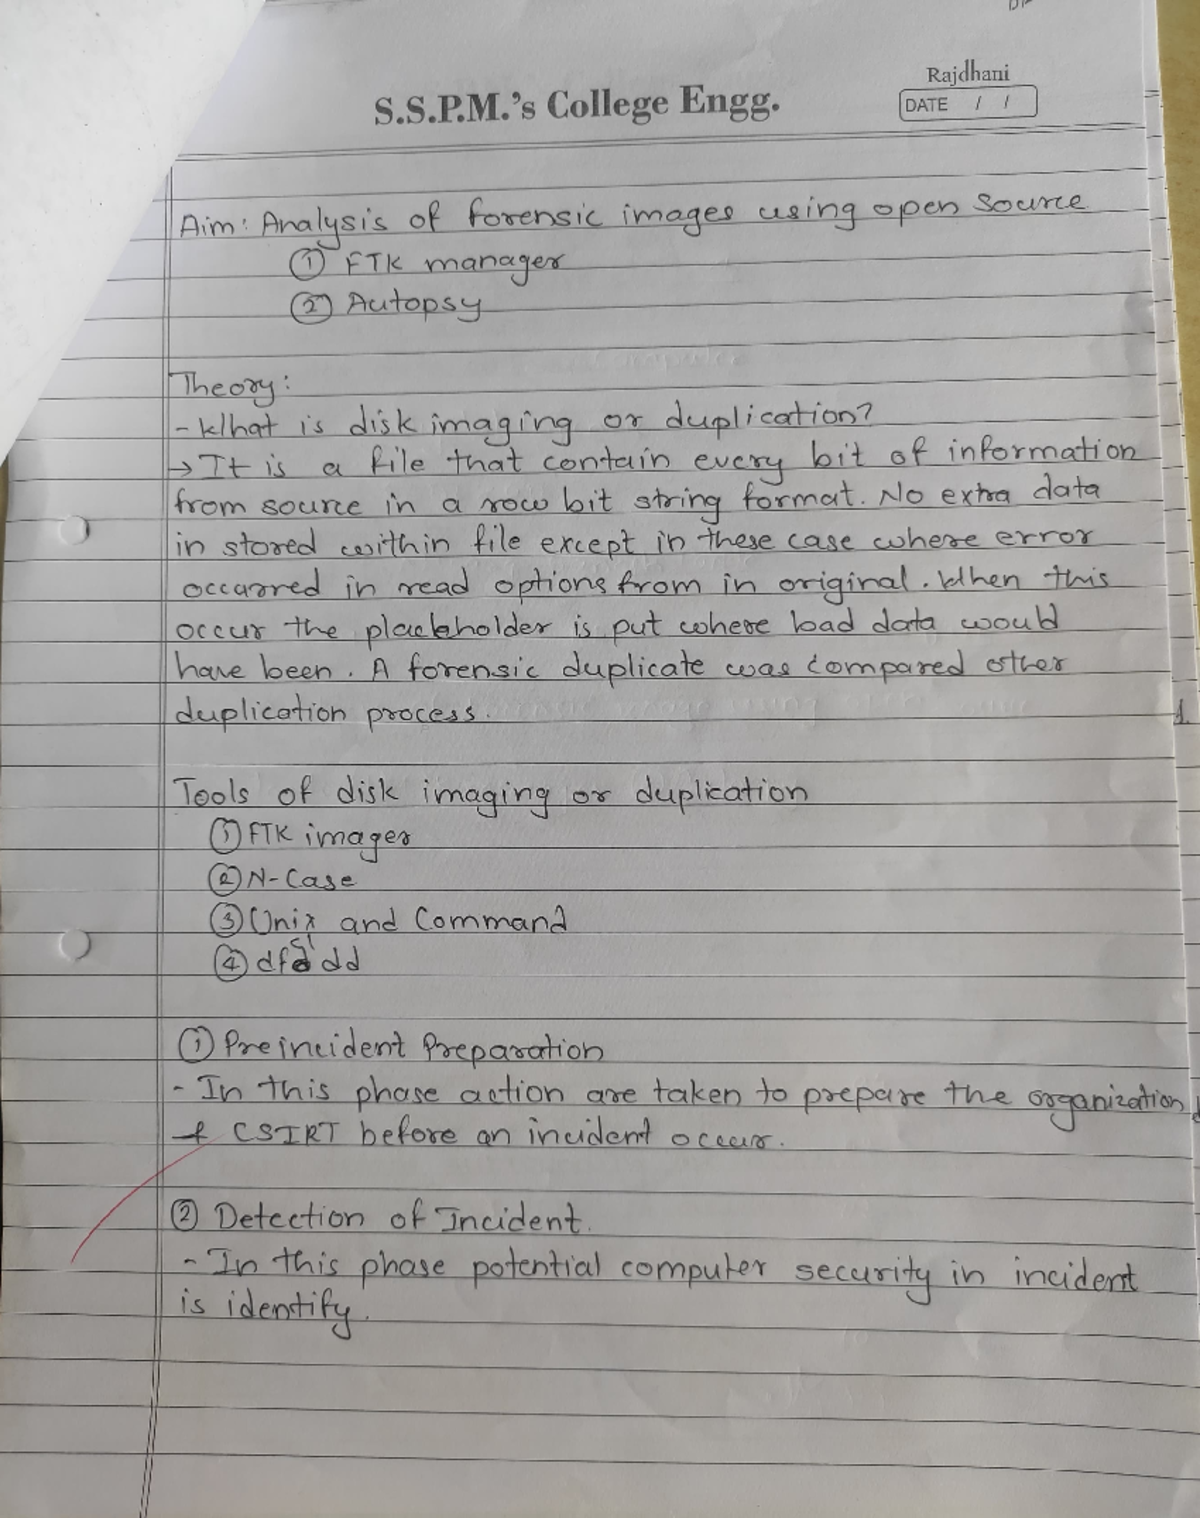 Rajdhani
S.S.P.M.'s College Engg.
DATE / /
Aim: Analysis of forensic images using open source
① FTK manager
② Autopsy
Theory:
- What is disk imaging or duplication?
→ It is a file that contain every bit of information
from source in a row bit string format. No extra data
in stored within file except in these case where error
occurred in read options from in original. When this
occur the placeholder is put where bad data would
have been. A forensic duplicate was compared other
duplication process.
Tools of disk imaging or duplication
① FTK imager
② N-Case
③ Unix and Command
④ dd
① Preincident Preparation
- In this phase action are taken to prepare the organization
+ CSIRT before an incident occur.
② Detection of Incident.
- In this phase potential computer security in incident
is identify.